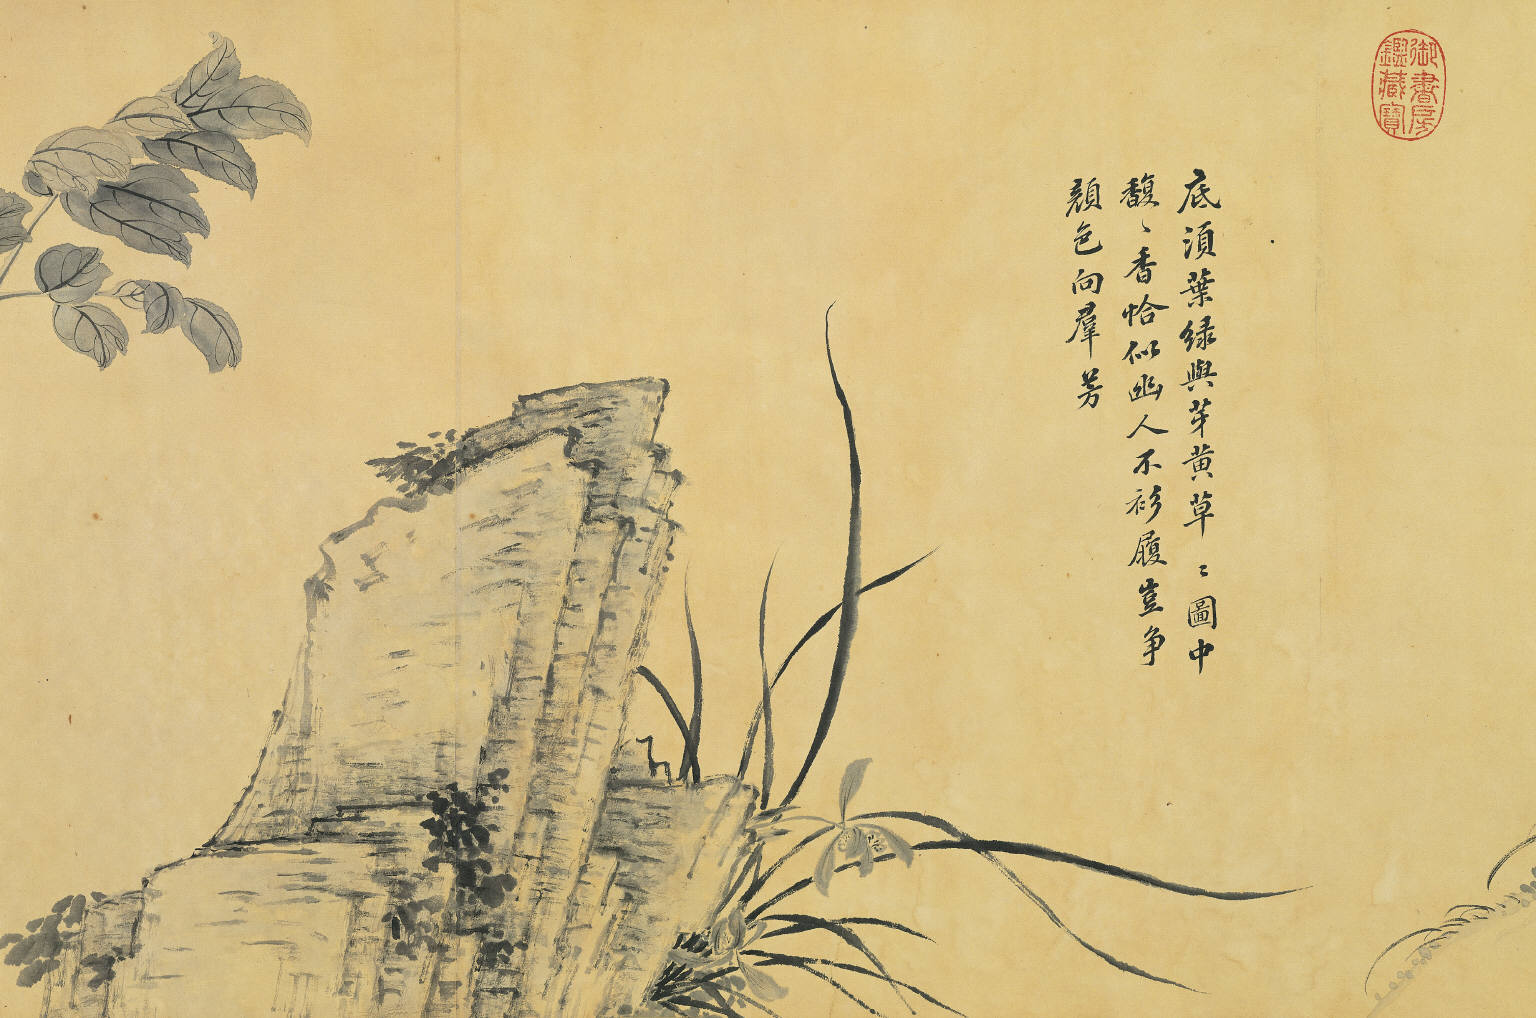 御書房
鑑藏寶
底須葉綠與芽黃草〻圖中
馥〻香恰似幽人不衫履豈爭
顏色向羣芳